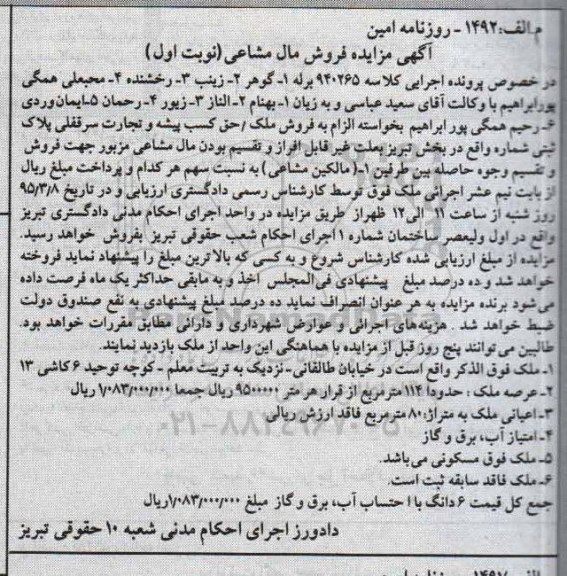 م الف:۱۴۹۲ - روزنامه امین
آگهی مزایده فروش مال مشاعی(نوبت اول)
در خصوص پرونده اجرایی کلاسه ۹۴۰۲۶۵ برله ۱- گوهر ۲- زینب ۳- رخشنده ۴- محبعلی همگی
پورابراهیم با وکالت آقای سعید عباسی و به زیان ۱- بهنام ۲- الناز ۳- زیور ۴- رحمان ۵-ایمان‌وردی
۶- رحیم همگی پور ابراهیم بخواسته الزام به فروش ملک /حق کسب پیشه و تجارت سرقفلی پلاک
ثبتی شماره واقع در بخش تبریز بعلت غیر قابل افراز و تقسیم بودن مال مشاعی مزبور جهت فروش
و تقسیم وجوه حاصله بین طرفین ۱-( مالکین مشاعی ) به نسبت سهم هر کدام و پرداخت مبلغ ریال
از بابت نیم عشر اجرائی ملک فوق توسط کارشناس رسمی دادگستری ارزیابی و در تاریخ ۹۵/۳/۸
روز شنبه از ساعت ۱۱ الی ۱۲ ظهراز طریق مزایده در واحد اجرای احکام مدنی دادگستری تبریز
واقع در اول ولیعصر ساختمان شماره ۱ اجرای احکام شعب حقوقی تبریز بفروش خواهد رسید.
مزایده از مبلغ ارزیابی شده کارشناس شروع و به کسی که بالا ترین مبلغ را پیشنهاد نماید فروخته
خواهد شد و ده درصد مبلغ پیشنهادی فی‌المجلس اخذ و به مابقی حداکثر یک ماه فرصت داده
می شود برنده مزایده به هر عنوان انصراف نماید ده درصد مبلغ پیشنهادی به نفع صندوق دولت
ضبط خواهد شد . هزینه‌های اجرائی و عوارض شهرداری و دارائی مطابق مقررات خواهد بود.
طالبین می توانند پنج روز قبل از مزایده با هماهنگی این واحد از ملک بازدید نمایند.
۱- ملک فوق الذکر واقع است در خیابان طالقانی- نزدیک به تربیت معلم - کوچه توحید ۶ کاشی ۱۳
۲- عرصه ملک : حدودا ۱۱۴ متر مربع از قرار هر متر ۹۵۰۰۰۰۰ ریال جمعا ۱/۰۸۳/۰۰۰/۰۰۰ ریال
۳- اعیانی ملک به متراژ:۸۰ متر مربع فاقد ارزش ریالی
۴- امتیاز آب، برق و گاز
۵- ملک فوق مسکونی می‌باشد.
۶- ملک فاقد سابقه ثبت است
جمع کل قیمت ۶ دانگ با احتساب آب، برق و گاز مبلغ ۱/۰۸۳/۰۰۰/۰۰۰ریال
دادورز اجرای احکام مدنی شعبه ۱۰ حقوقی تبریز
ParsNamadData
۰۲۱-۸۸۳۴۹۶۷۰-۵